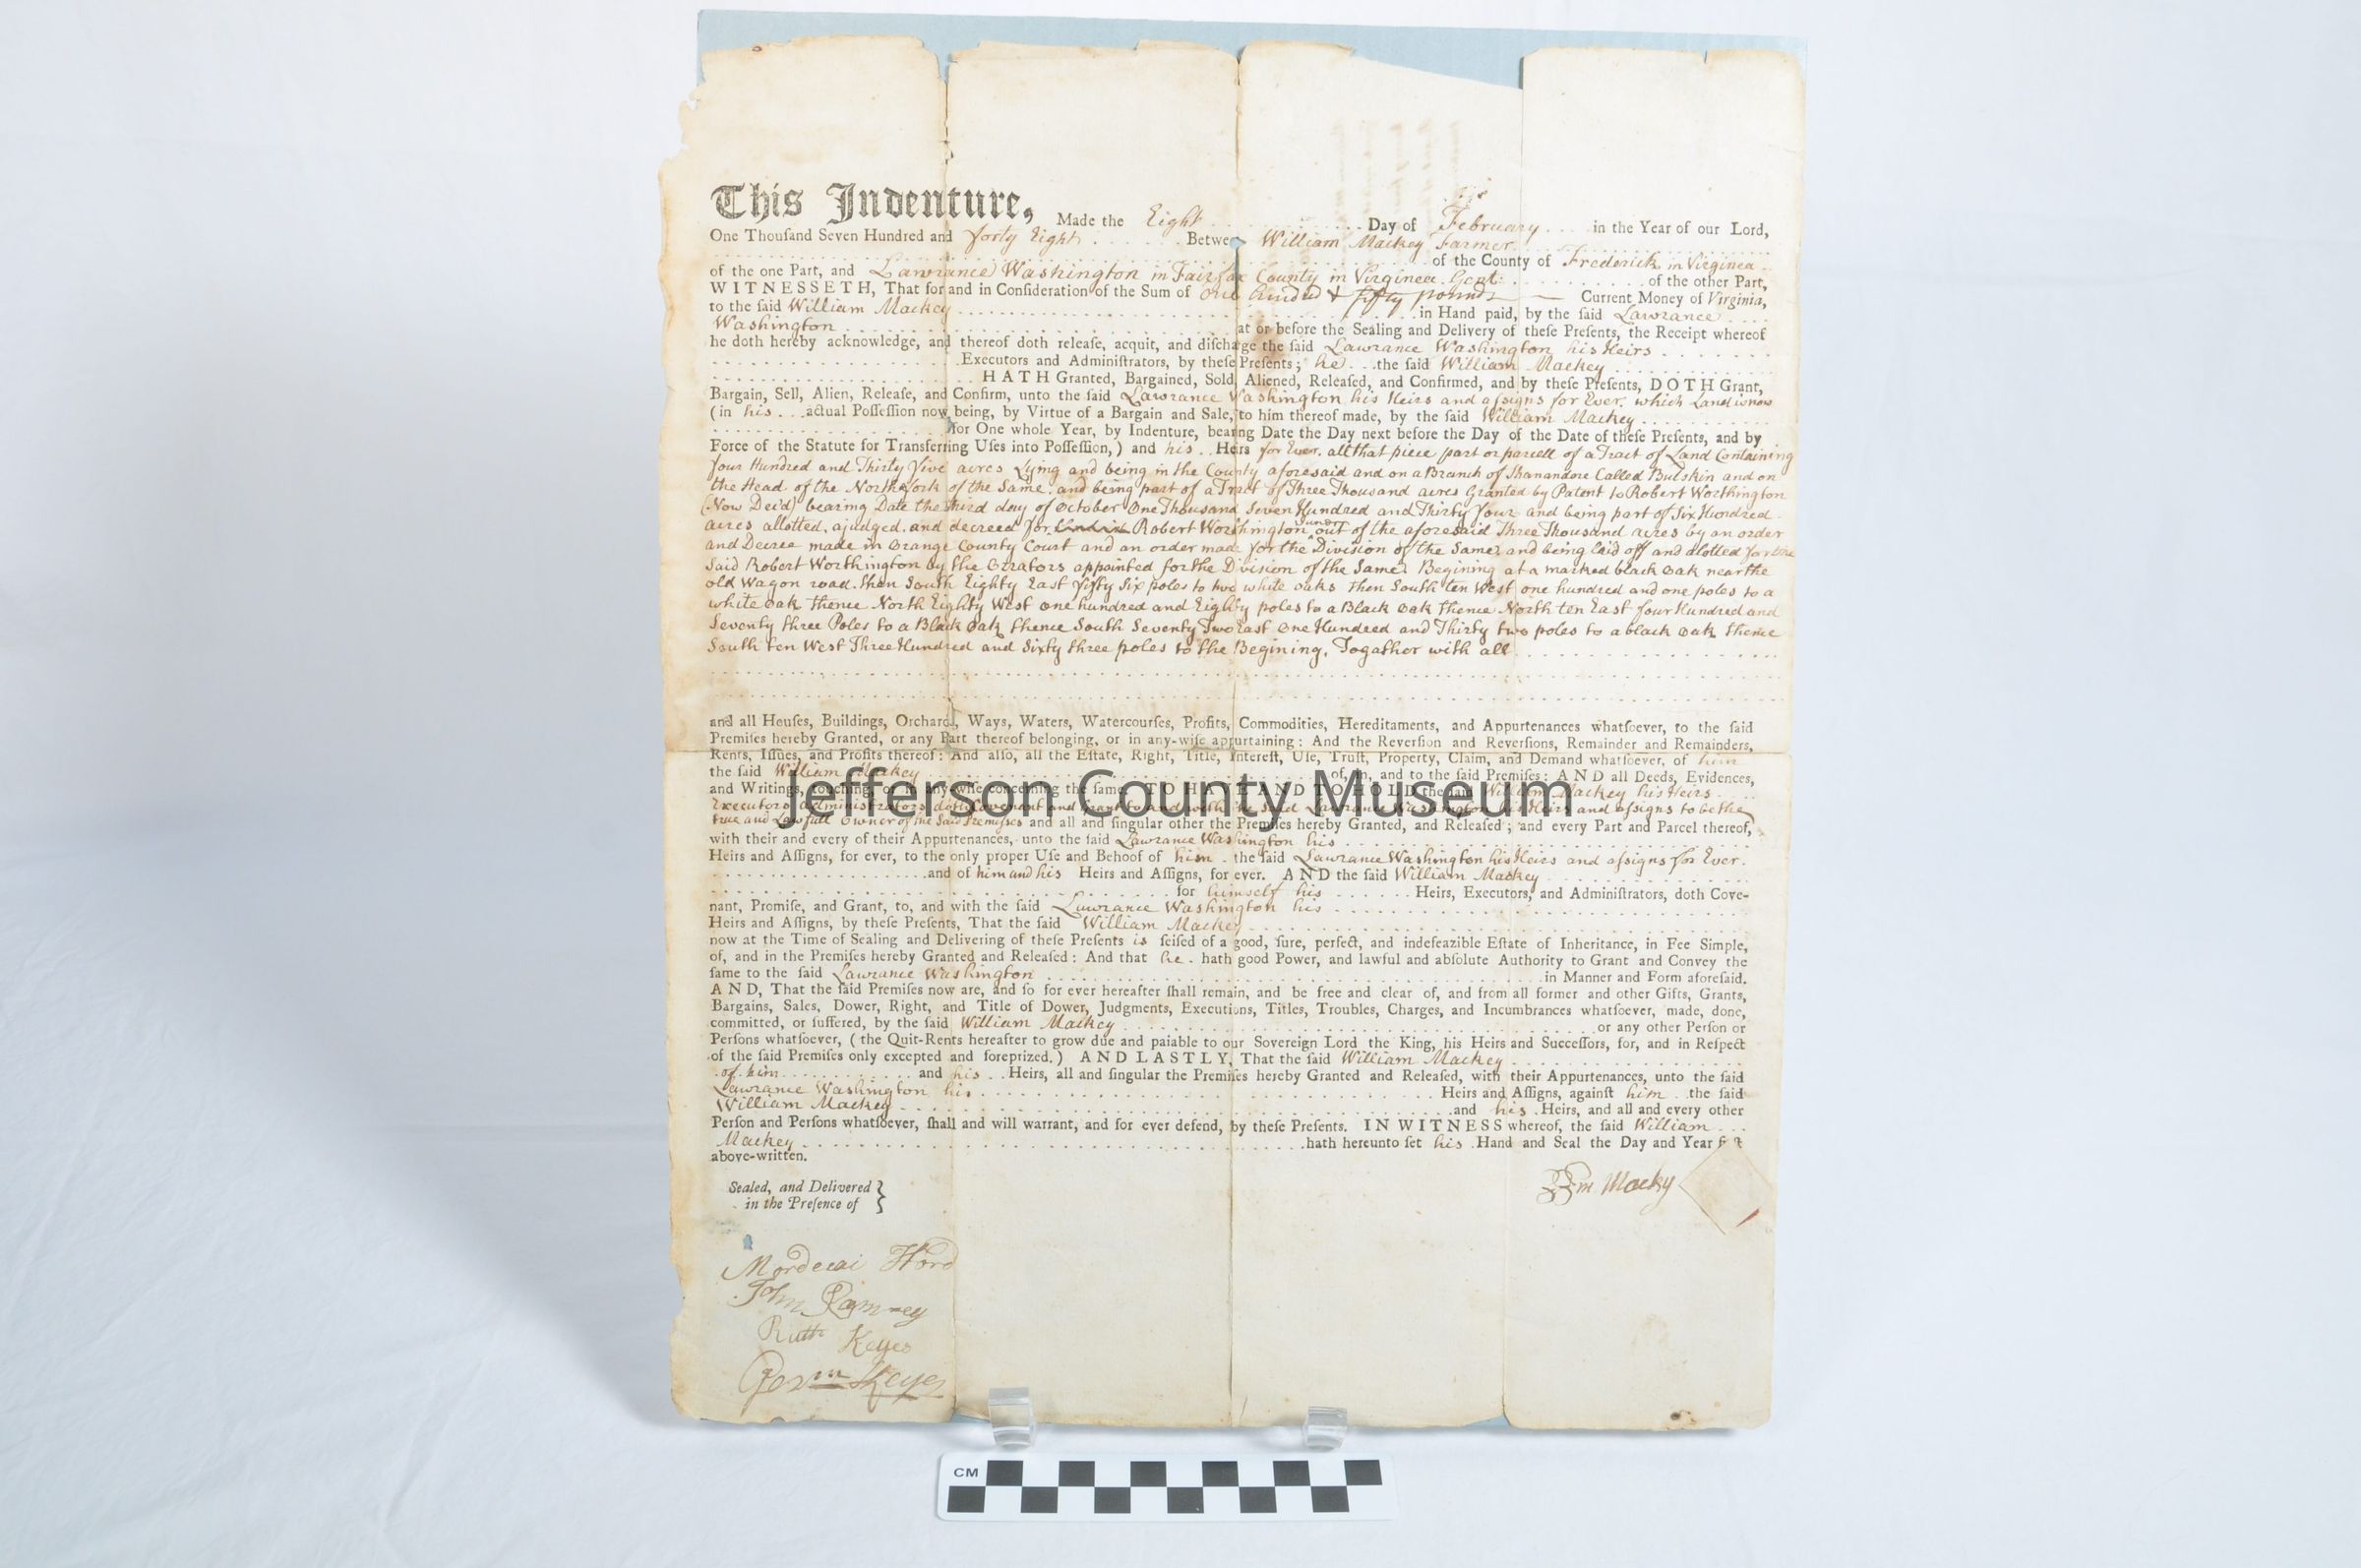 This Indenture, Made the Eight Day of February in the Year of our Lord,
One Thouſand Seven Hundred and forty Eight Between William Mackey Farmer
of the County of Frederick in Virginea
of the one Part, and Lawrance Washington in Fairfax County in Virginea Gent: of the other Part,
WITNESSETH, That for and in Conſideration of the Sum of One hundrd & fifty pounds Current Money of Virginia,
to the ſaid William Mackey in Hand paid, by the ſaid Lawrance
Washington at or before the Sealing and Delivery of theſe Preſents, the Receipt whereof
he doth hereby acknowledge, and thereof doth releaſe, acquit, and diſcharge the ſaid Lawrance Washington his Heirs
Executors and Adminiſtrators, by theſe Preſents; he the ſaid William Mackey
HATH Granted, Bargained, Sold, Aliened, Releaſed, and Confirmed, and by theſe Preſents, DOTH Grant,
Bargain, Sell, Alien, Releaſe, and Confirm, unto the ſaid Lawrance Washington his Heirs and aſsigns for Ever. which Land is now
(in his actual Poſſeſſion now being, by Virtue of a Bargain and Sale, to him thereof made, by the ſaid William Mackey
for One whole Year, by Indenture, bearing Date the Day next before the Day of the Date of theſe Preſents, and by
Force of the Statute for Transferring Uſes into Poſſeſſion,) and his Heirs for Ever. all that piece part or parcell of a Tract of Land Containing
four Hundred and Thirty five acres Lying and being in the County aforesaid and on a Branch of Shanandore Called Bulskin and on
the Head of the North fork of the Same. and being part of a Tract of Three Thousand acres Granted by Patent to Robert Worthington
(Now Dec'd) bearing Date the third day of October One Thousand Seven Hundred and Thirty four and being part of Six Hundred
acres allotted, ajudged, and decreed for Robert Worthington out of the aforesaid Three Thousand acres by an order
and Decree made in Orange County Court and an order made for the Division of the Same, and being laid off and aloted for the
Said Robert Worthington by the appointed for the Division of the Same. Begining at a marked black Oak near the
old Wagon road. then South Eighty East fifty Six poles to two white oaks then South ten West one hundred and one poles to a
white Oak thence North Eighty West one hundred and Eighty poles to a Black Oak thence North ten East four Hundred and
Seventy three Poles to a Black Oak thence South Seventy Two East One Hundred and Thirty two poles to a black Oak thence
South ten West Three Hundred and Sixty three poles to the Begining, Togather with all
and all Houſes, Buildings, Orchard, Ways, Waters, Watercourſes, Profits, Commodities, Hereditaments, and Appurtenances whatſoever, to the ſaid
Premiſes hereby Granted, or any Part thereof belonging, or in any-wiſe appurtaining: And the Reverſion and Reverſions, Remainder and Remainders,
Rents, Iſſues, and Profits thereof: And alſo, all the Eſtate, Right, Title, Intereſt, Uſe, Truſt, Property, Claim, and Demand whatſoever, of him
the ſaid William Mackey of, in, and to the ſaid Premiſes: AND all Deeds, Evidences,
and Writings, touching, or in any-wiſe concerning the ſame TO HAVE AND TO HOLD the ſaid William Mackey his Heirs
Executors administrators doth Covenant and Grant to and with the Said Lawrance Washington his Heirs and aſsigns to be the
true and Lawfull Owner of the Said Premiſses and all and ſingular other the Premiſes hereby Granted, and Releaſed; and every Part and Parcel thereof,
with their and every of their Appurtenances, unto the ſaid Lawrance Washington his
Heirs and Aſſigns, for ever, to the only proper Uſe and Behoof of him the ſaid Lawrance Washington his Heirs and aſsigns for Ever.
and of him and his Heirs and Aſſigns, for ever. AND the ſaid William Mackey
for himself his Heirs, Executors, and Adminiſtrators, doth Cove-
nant, Promiſe, and Grant, to, and with the ſaid Lawrance Washington his
Heirs and Aſſigns, by theſe Preſents, That the ſaid William Mackey
now at the Time of Sealing and Delivering of theſe Preſents is ſeiſed of a good, ſure, perfect, and indefeazible Eſtate of Inheritance, in Fee Simple,
of, and in the Premiſes hereby Granted and Releaſed: And that he hath good Power, and lawful and abſolute Authority to Grant and Convey the
ſame to the ſaid Lawrance Washington in Manner and Form aforeſaid.
AND, That the ſaid Premiſes now are, and ſo for ever hereafter ſhall remain, and be free and clear of, and from all former and other Gifts, Grants,
Bargains, Sales, Dower, Right, and Title of Dower, Judgments, Executions, Titles, Troubles, Charges, and Incumbrances whatſoever, made, done,
committed, or ſuffered, by the ſaid William Mackey or any other Perſon or
Perſons whatſoever, (the Quit-Rents hereafter to grow due and paiable to our Sovereign Lord the King, his Heirs and Succeſſors, for, and in Reſpect
of the ſaid Premiſes only excepted and foreprized.) AND LASTLY, That the ſaid William Mackey
of him and his Heirs, all and ſingular the Premiſes hereby Granted and Releaſed, with their Appurtenances, unto the ſaid
Lawrance Washington his Heirs and Aſſigns, againſt him the ſaid
William Mackey and his Heirs, and all and every other
Perſon and Perſons whatſoever, ſhall and will warrant, and for ever defend, by theſe Preſents. IN WITNESS whereof, the ſaid William
Mackey hath hereunto ſet his Hand and Seal the Day and Year
above-written.
Wm Macky
Sealed, and Delivered
in the Preſence of
Mordecai Hord
John Ramney
Ruth Keyes
Gersm Keyes
Jefferson County Museum
CM